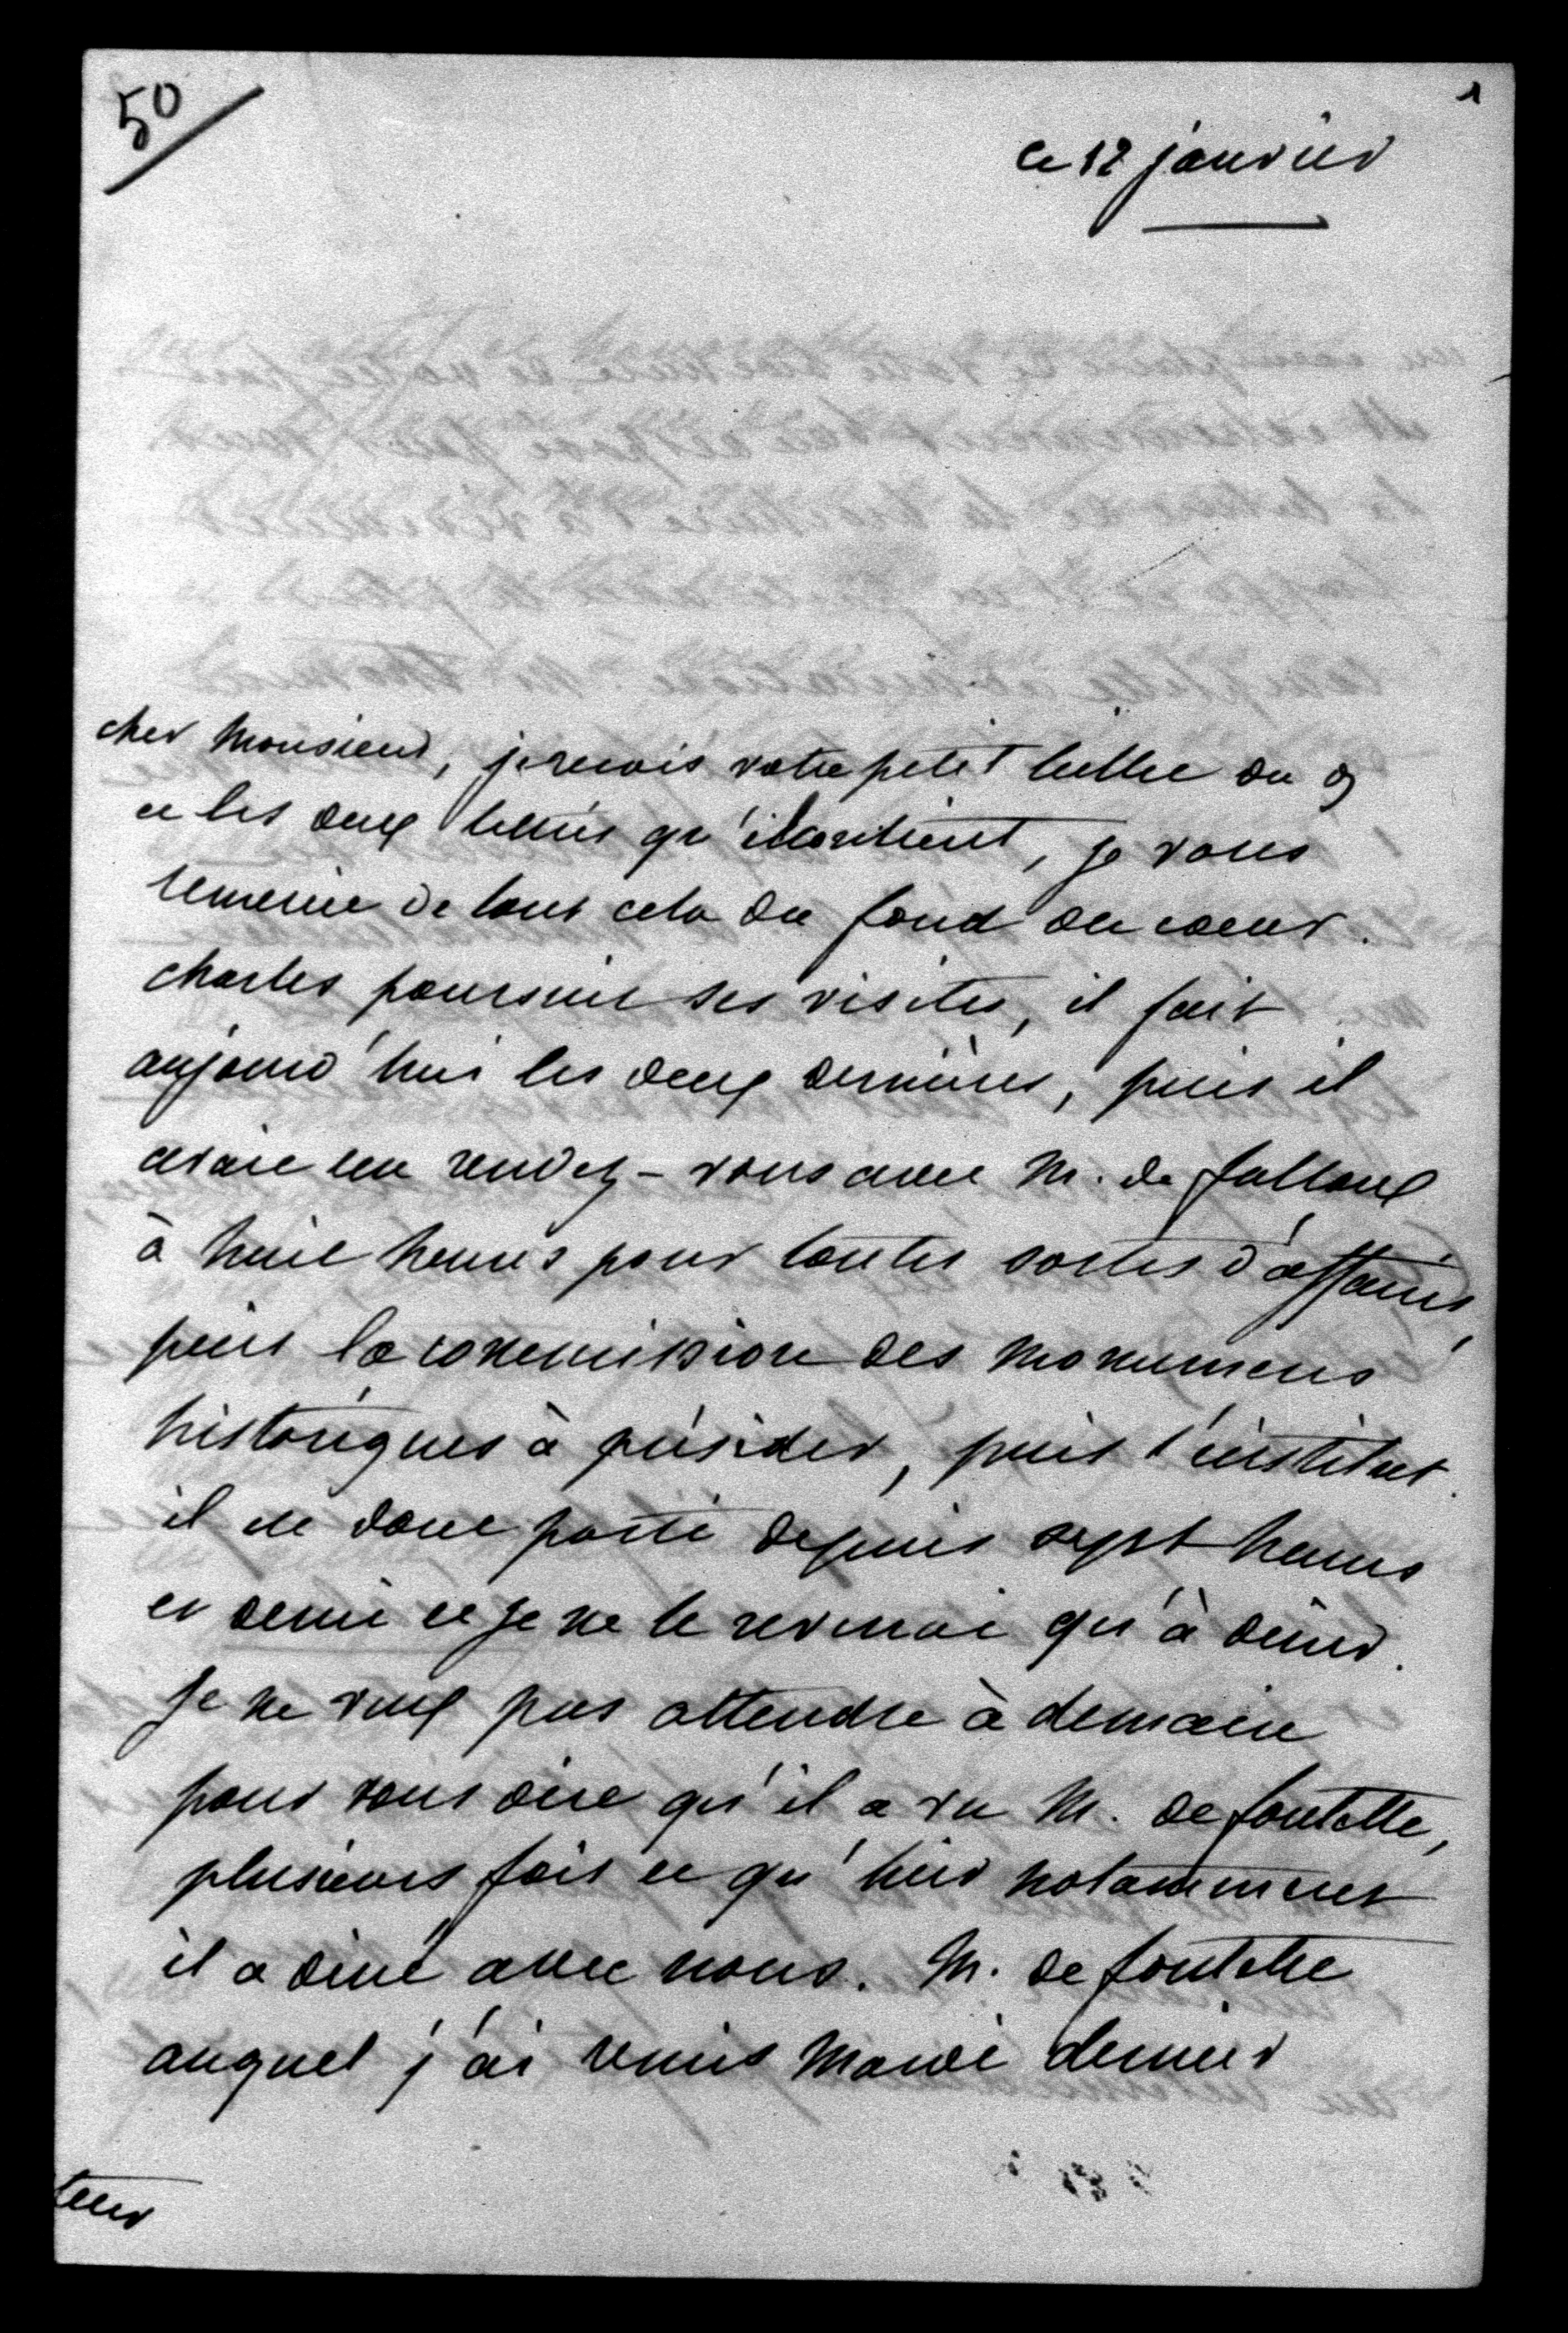 50
1
ce 12 janvier
cher monsieur, je reçois votre petit billet du 9
et les deux lettres qu'il contient, je vous
remercie de tout cela du fond du coeur.
charles poursuit ses visites, il fait
aujourd'hui les deux dernières, puis il
avait un rendez-vous avec M. de falloux
à huit heures pour toutes sortes d'affaires,
puis la commission des monumens
historiques à présider, puis l'institut.
il est donc parti depuis sept heures
et demie et je ne le reverrai qu'à diner.
je ne veux pas attendre à demain
pour vous dire qu'il a vu M. de fontette,
plusieurs fois et qu'hier notamment
il a diné avec nous. M. de fontette
auquel j'ai remis mardi dernier